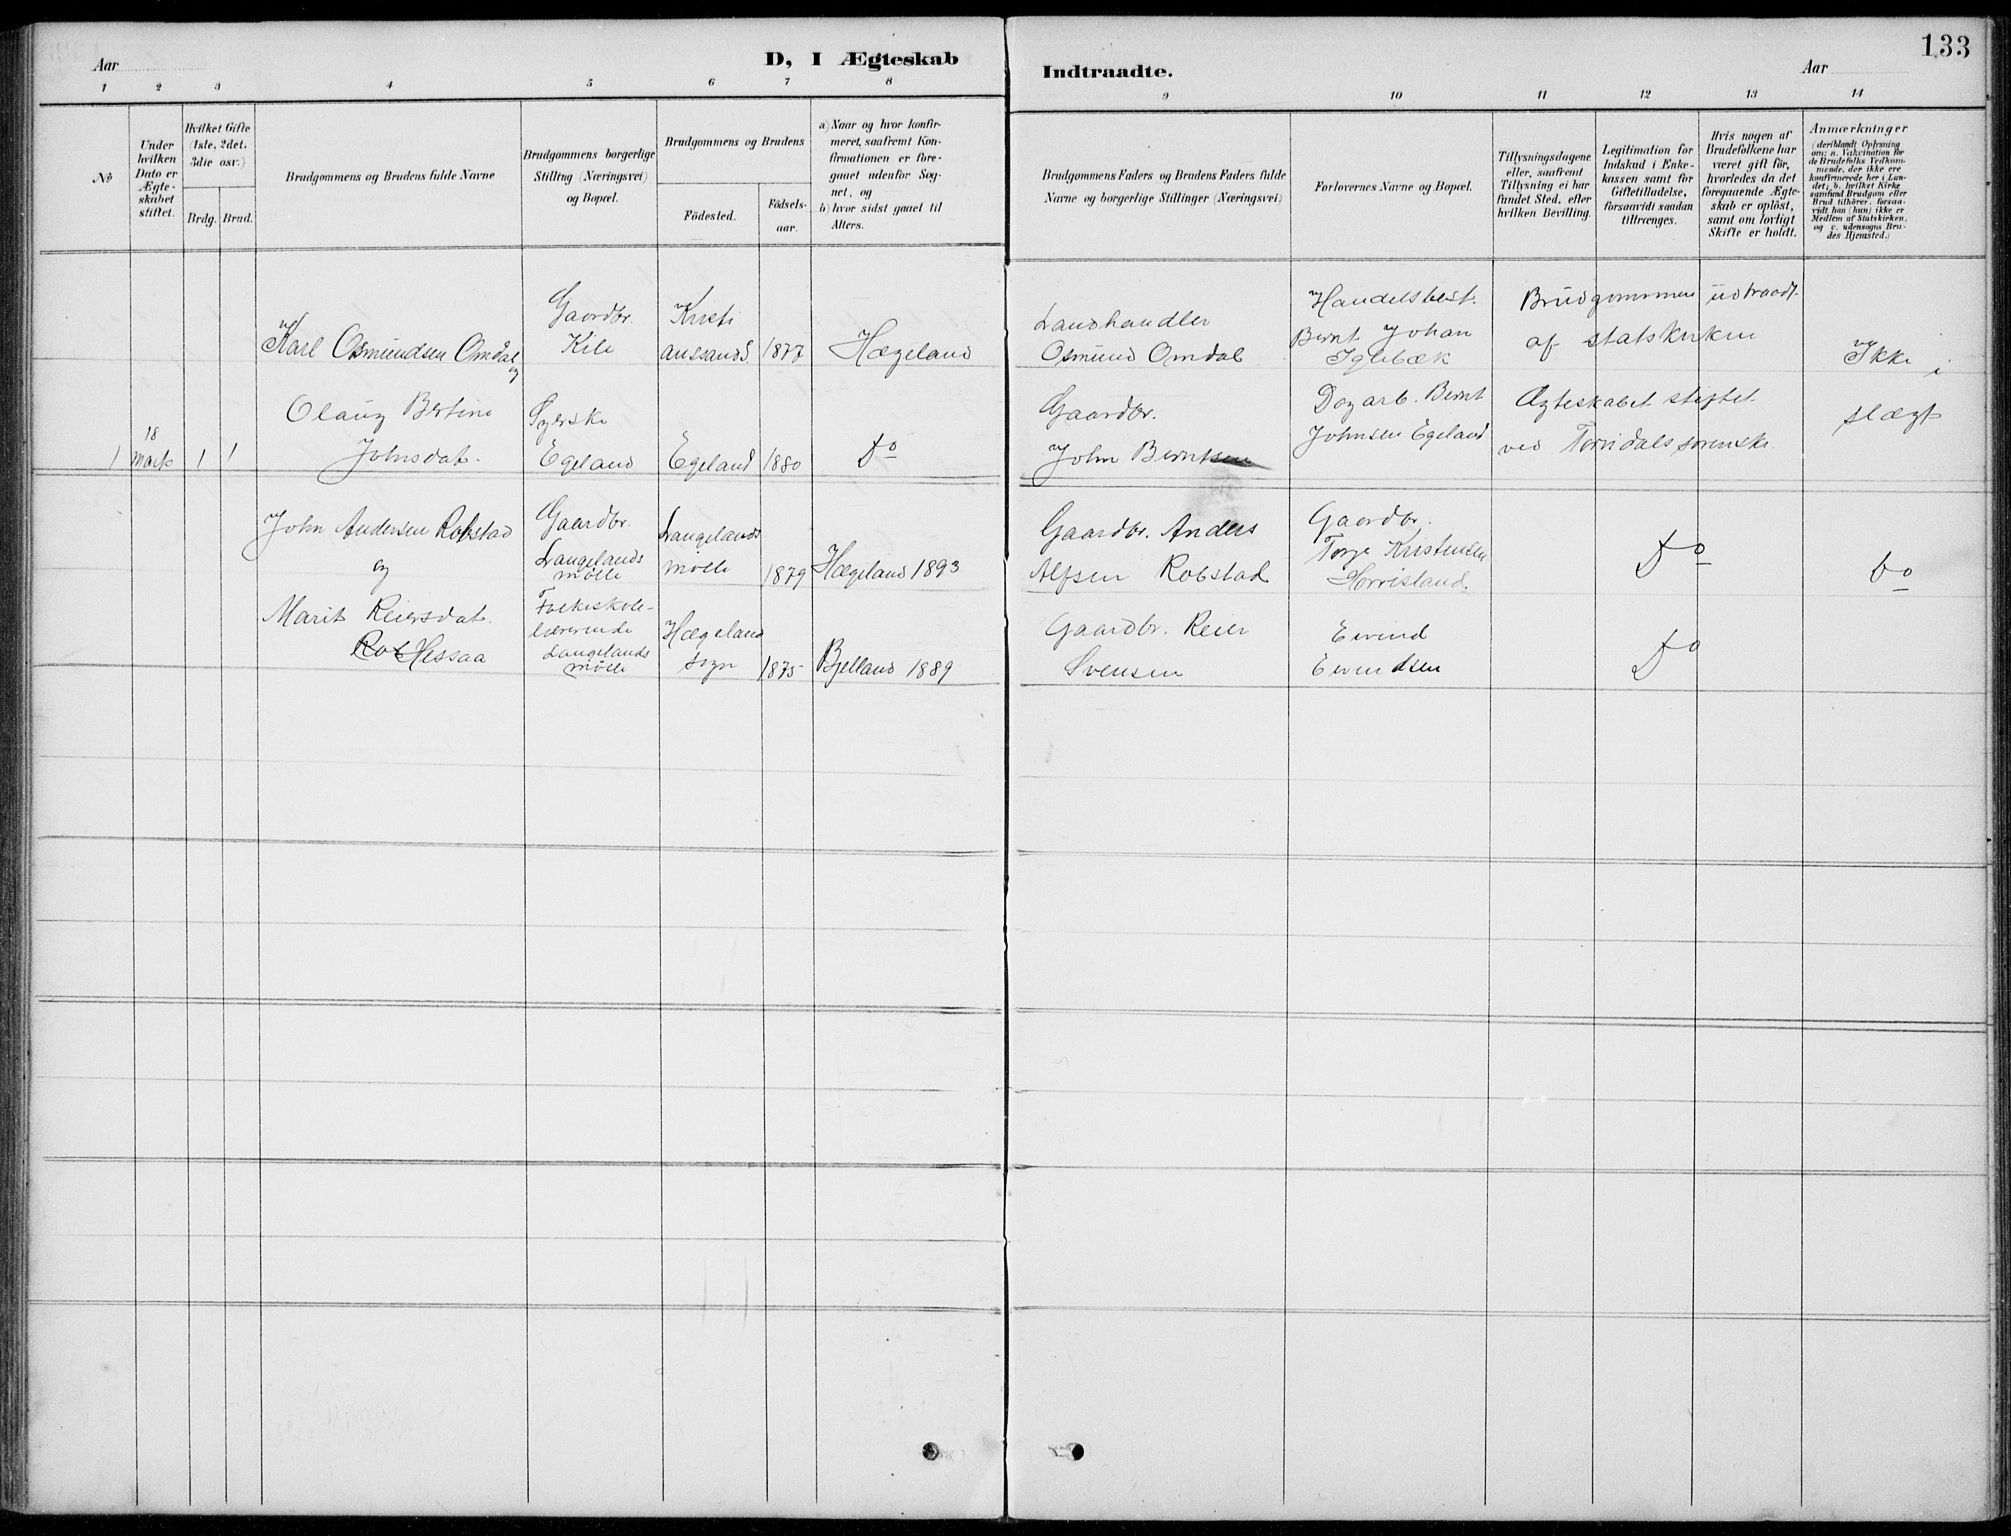 133
Aar
D, I Ægteskab
Indtraadte.
Aar
1 2 3 4 5 6 7 8
9 10 11 12 13 14
No
Under
hvilken
Dato er
Ægte-
skabet
stiftet.
Hvilket Gifte
(1ste, 2det,
3die osv.)
Brdg. Brud.
Brudgommens og Brudens fulde Navne
Brudgommens borgerlige
Stilling (Næringsvei)
og Bopæl.
Brudgommens og Brudens
Födested.
Födsels-
aar.
a) Naar og hvor konfir-
meret, saafremt Kon-
firmationen er fore-
gaaet udenfor Sog-
net, og
b) hvor sidst gaaet til
Alters.
Brudgommens Faders og Brudens Faders fulde
Navne og borgerlige Stillinger (Næringsvei)
Forlovernes Navne og Bopæl.
Tillysningsdagene
eller, saafremt
Tillysning ei har
fundet Sted, efter
hvilken Bevilling.
Legitimation for
Indskud i Enke-
kassen samt for
Giftetilladelse,
forsaavidt saadan
tiltrænges.
Hvis nogen af
Brudefolkene har
været gift för,
hvorledes da det
foregaaende Ægte-
skab er oplöst,
samt om lovligt
Skifte er holdt.
Anmærkninger
(deriblandt Oplysning
om: a. Vakcination for
de Brudefolks Vedkom-
mende, der ikke ere
konfirmerede her i Lan-
det; b. hvilket Kirke
samfund Brudgom eller
Brud tilhörer, forsaa-
vidt han (hun) ikke er
Medlem af Statskirken,
og c. udensogns Bru-
des Hjemsted.)
Karl Osmundsen Omdal
og
Gaardbr.
Kile
Kristi
anssand
1877
Hægeland
Landhandler
Osmund Omdal
Handelsbest.
Bernt Johan
Iglebæk
Brudgommen udtraadt
af statskirken
Ikke i
slægt
1
18
Marts
1 1
Olaug Bertine
Johnsdat.
Syerske
Egeland
Egeland
1880
Do
Gaardbr.
John Berntsen
Dagarb. Bernt
Johnsen Egeland
Ægteskabet stiftet
ved Torridals sorenskr.
John Andersen Robstad
og
Gaardbr.
Langelands
mølle
Langelands
mølle
1879
Hægeland 1893
Gaardbr. Anders
Alfsen Robstad
Gaardbr.
Torje Kristensen
Horrisland.
Do
Do
Marit Reiersdat.
Rob Hessaa
Folkeskole-
lærerinde
Langelands
mølle
Hægeland
Sogn
1875
Bjelland 1889
Gaardbr. Reier
Svensen
Eivind
Eivindsen
Do